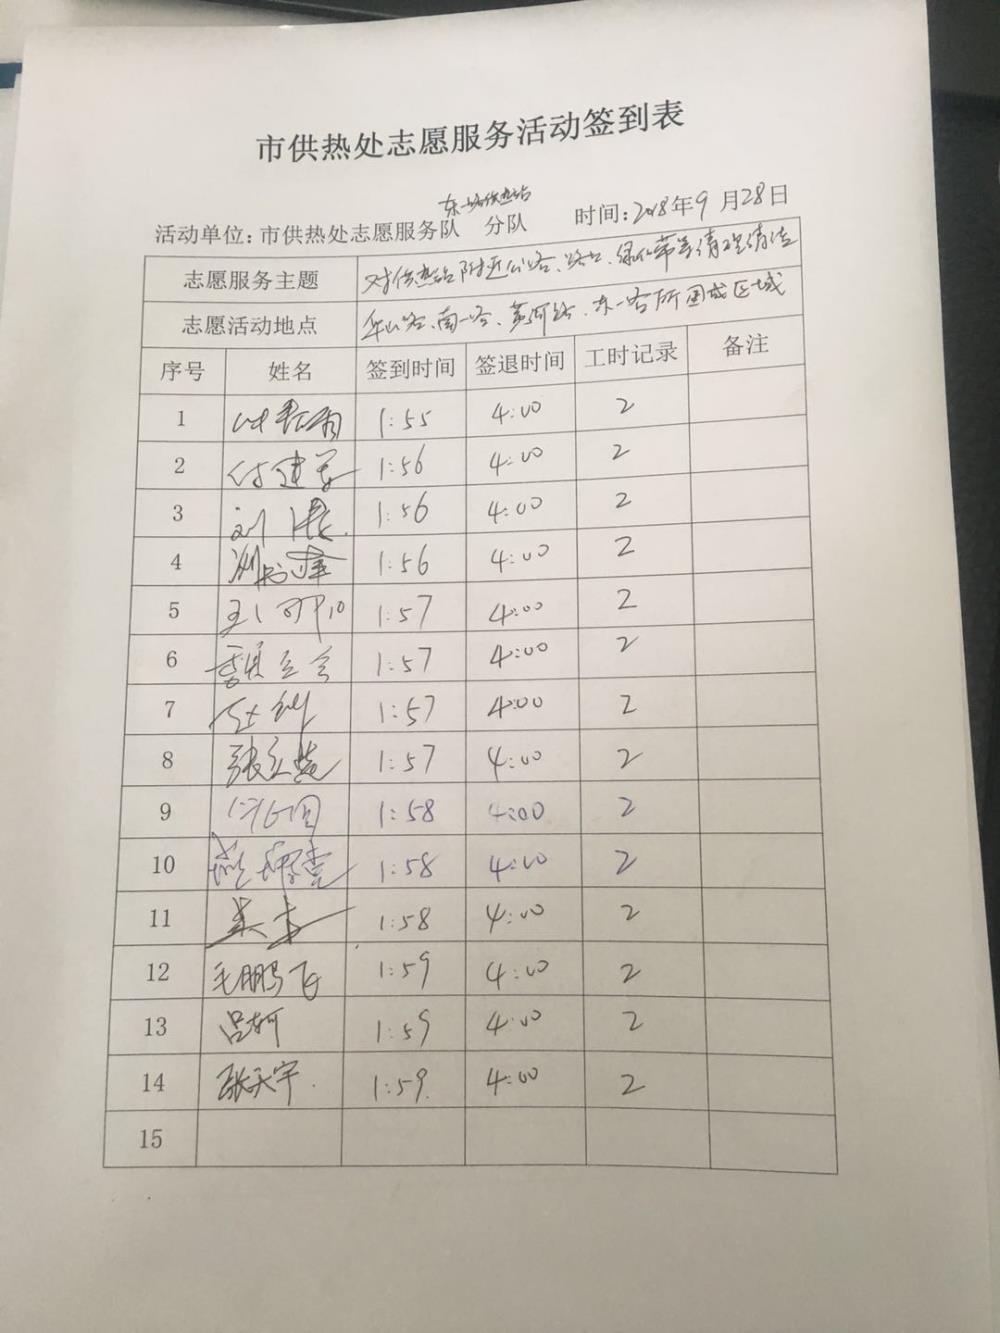 市供热处志愿服务活动签到表
东一路供热站
活动单位：市供热处志愿服务队 分队 时间：2018年9月28日
志愿服务主题 对供热站附近公路、路口、绿化带等清理清洁
志愿活动地点 华山路、南一路、黄河路、东一路所围成区域
序号 姓名 签到时间 签退时间 工时记录 备注
1 1:55 4:00 2
2 付建军 1:56 4:00 2
3 刘 1:56 4:00 2
4 1:56 4:00 2
5 1:57 4:00 2
6 1:57 4:00 2
7 1:57 4:00 2
8 张立 1:57 4:00 2
9 1:58 4:00 2
10 1:58 4:00 2
11 1:58 4:00 2
12 毛鹏飞 1:59 4:00 2
13 吕柯 1:59 4:00 2
14 张天宇. 1:59. 4:00 2
15